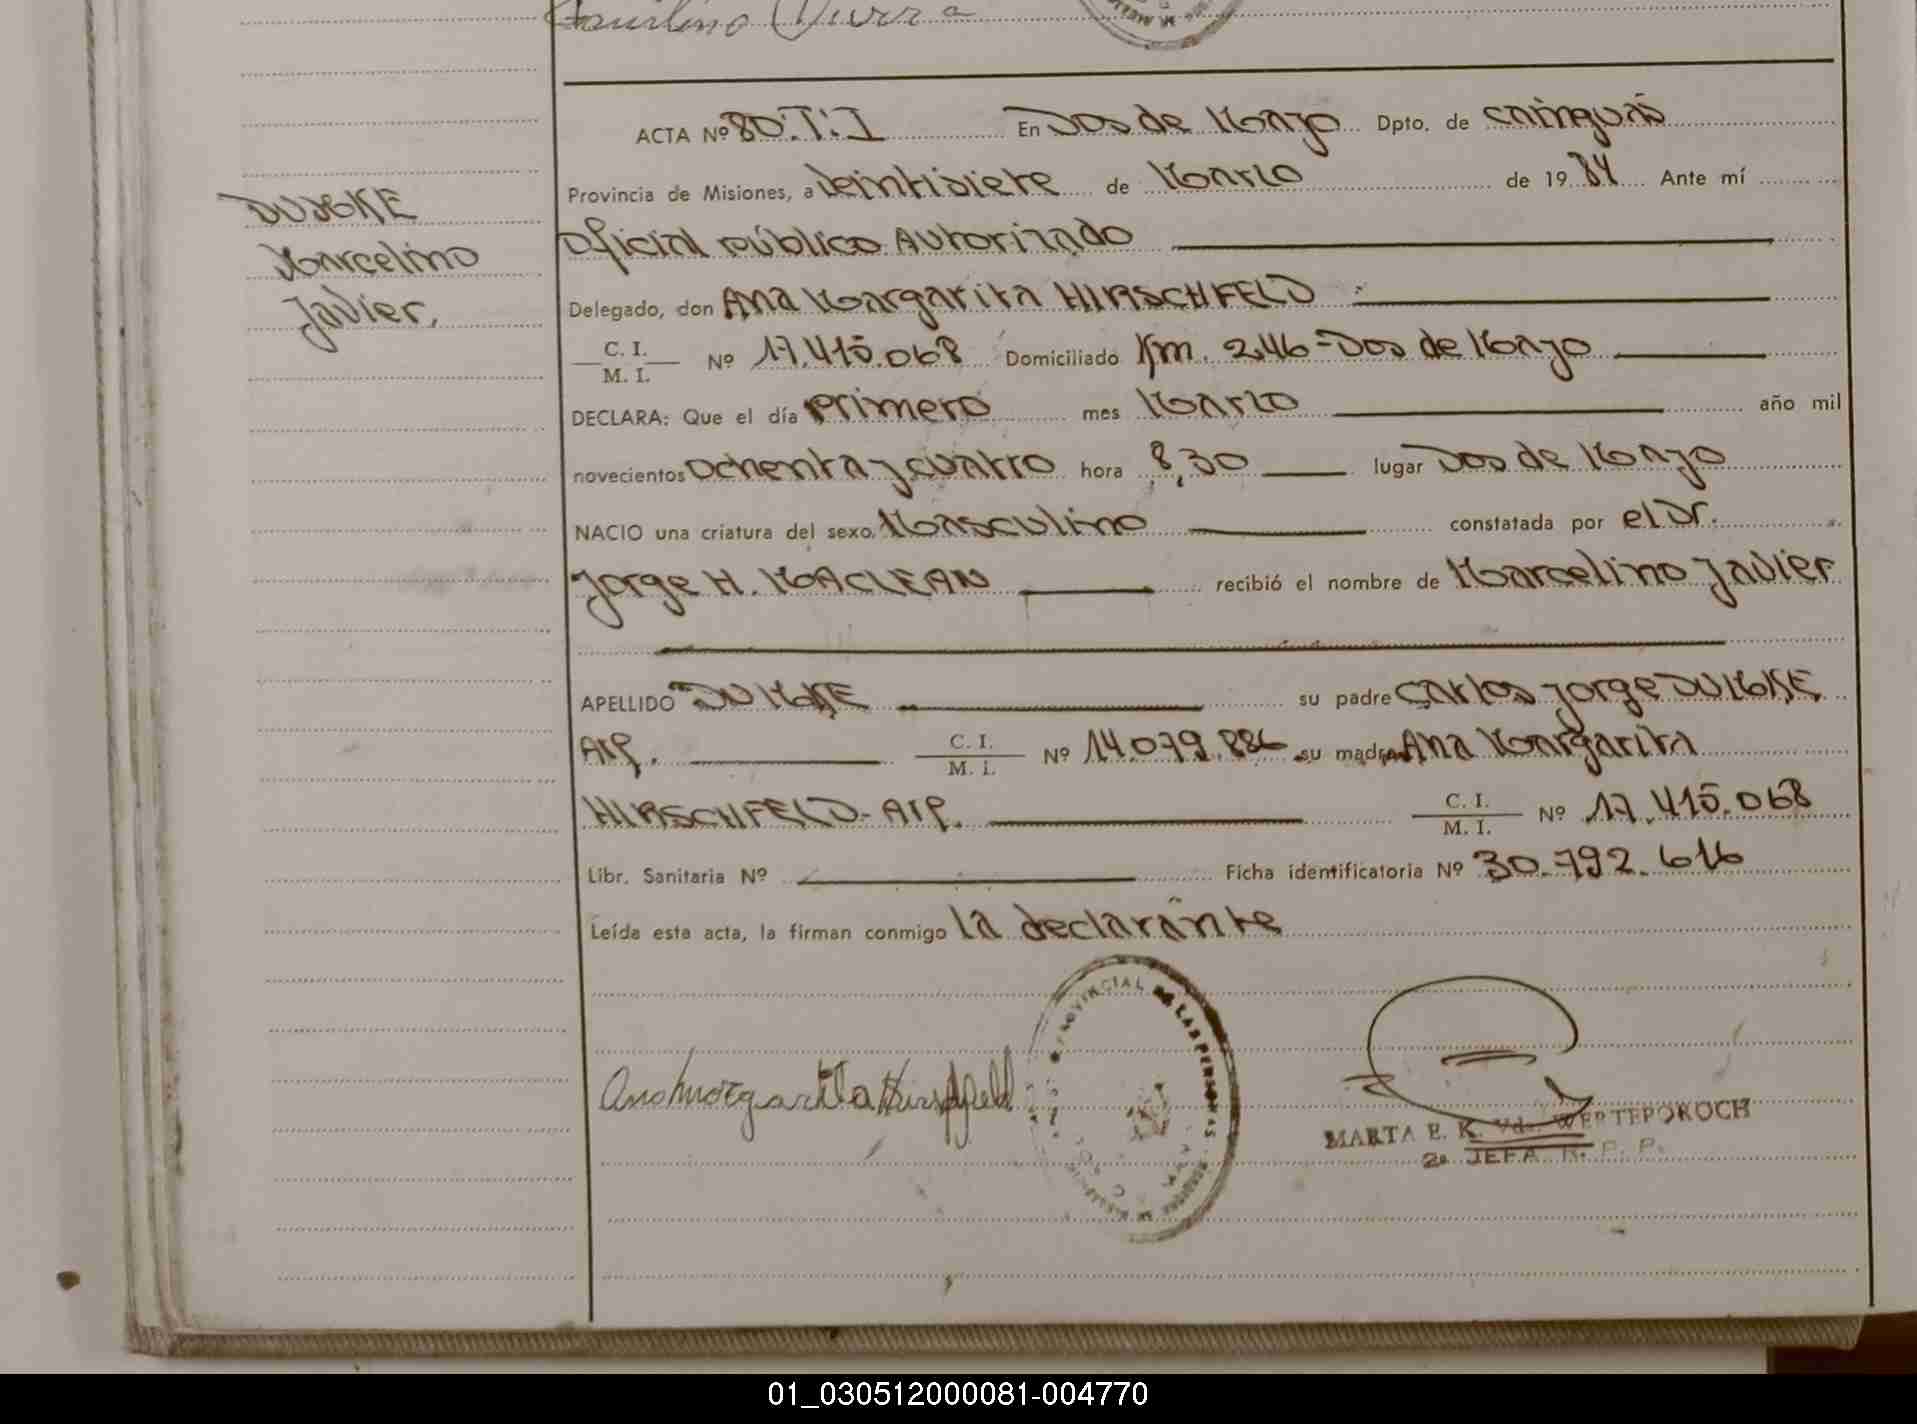 ACTA Nº 80.T.I En Dos de Mayo Dpto. de Cainguás
Provincia de Misiones, a veintisiete de Marzo de 1984 Ante mí
Oficial público Autorizado
Delegado, don Ana Margarita HIRSCHFELD
C. I.
M. I. Nº 17.415.068 Domiciliado Km. 246-Dos de Mayo
DECLARA: Que el día primero mes Marzo año mil
novecientos ochenta y cuatro hora 8,30 lugar Dos de Mayo
NACIO una criatura del sexo Masculino constatada por el Dr.
Jorge H. MACLEAN recibió el nombre de Marcelino Javier
APELLIDO DUMKE su padre Carlos Jorge DUMKE
Arg. C. I. M. I. Nº 14.079.886 su madre Ana Margarita
HIRSCHFELD-Arg. C. I. M. I. Nº 17.415.068
Libr. Sanitaria Nº Ficha identificatoria Nº 30.792.616
Leída esta acta, la firman conmigo la declarante
DUMKE
Marcelino
Javier.
Ana Margarita Hirschfeld
PROVINCIAL DE LAS PERSONAS
MARTA E. K. Vda. WERTEPOROCH
2a JEFA R. P. P.
01_030512000081-004770